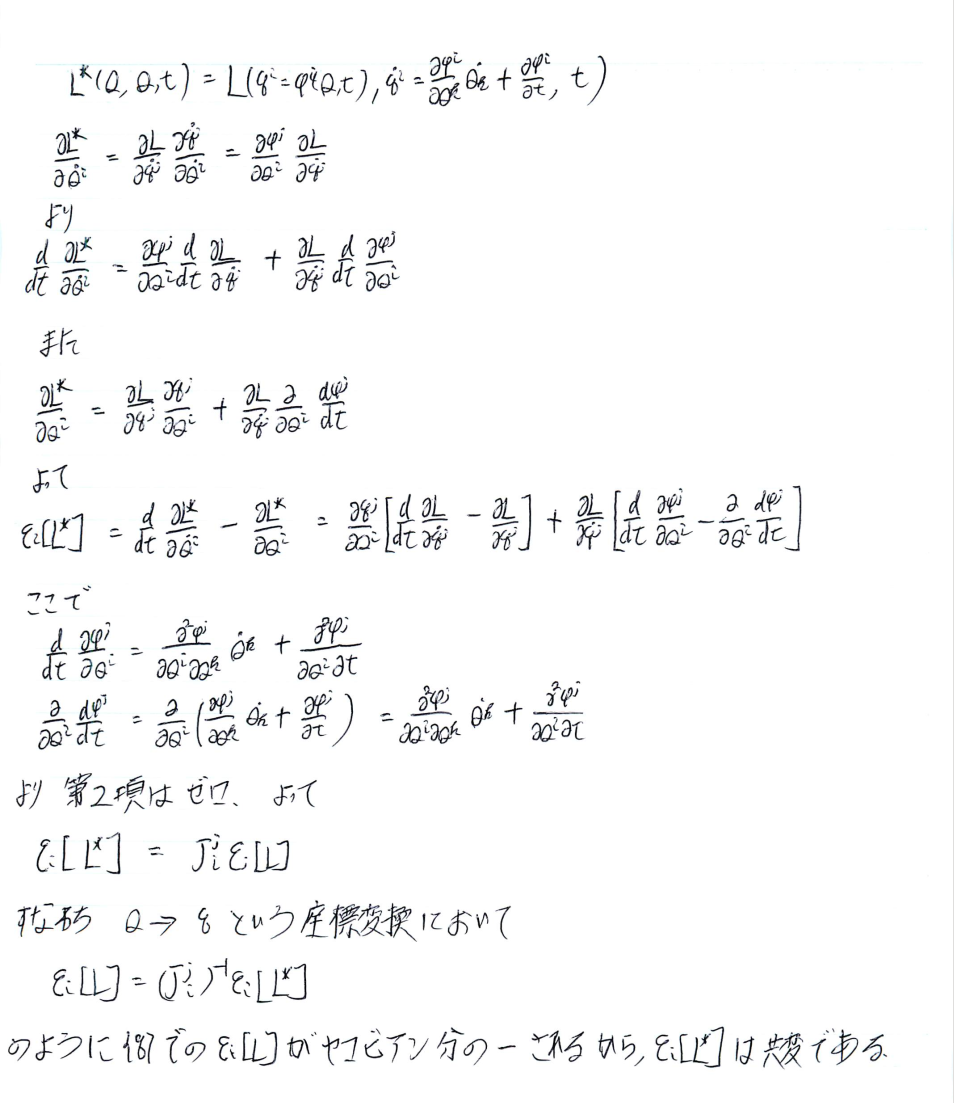 L*(Q, Q̇,t) = L(q^i=φ^i(Q,t), q̇^i = ∂φ^i/∂Q^k Q̇^k + ∂φ^i/∂t, t)
∂L*/∂Q̇^i = ∂L/∂q̇^j ∂q̇^j/∂Q̇^i = ∂φ^j/∂Q^i ∂L/∂q̇^j
より
d/dt ∂L*/∂Q̇^i = ∂φ^j/∂Q^i d/dt ∂L/∂q̇^j + ∂L/∂q̇^j d/dt ∂φ^j/∂Q^i
また
∂L*/∂Q^i = ∂L/∂q^j ∂q^j/∂Q^i + ∂L/∂q̇^j ∂/∂Q^i dφ^j/dt
よって
ε_i[L*] = d/dt ∂L*/∂Q̇^i - ∂L*/∂Q^i = ∂q^j/∂Q^i [d/dt ∂L/∂q̇^j - ∂L/∂q^j] + ∂L/∂q̇^j [d/dt ∂φ^j/∂Q^i - ∂/∂Q^i dφ^j/dt]
ここで
d/dt ∂φ^j/∂Q^i = ∂²φ^j/∂Q^i∂Q^k Q̇^k + ∂²φ^j/∂Q^i∂t
∂/∂Q^i dφ^j/dt = ∂/∂Q^i (∂φ^j/∂Q^k Q̇^k + ∂φ^j/∂t) = ∂²φ^j/∂Q^i∂Q^k Q̇^k + ∂²φ^j/∂Q^i∂t
より 第2項は ゼロ、よって
ε_i[L*] = J^j_i ε[L]
すなわち Q→q という座標変換において
ε_i[L] = (J^j_i)^-1 ε_i[L*]
のように {q}での ε_i[L] がヤコビアン分の一されるから, ε_i[L*] は共変である.